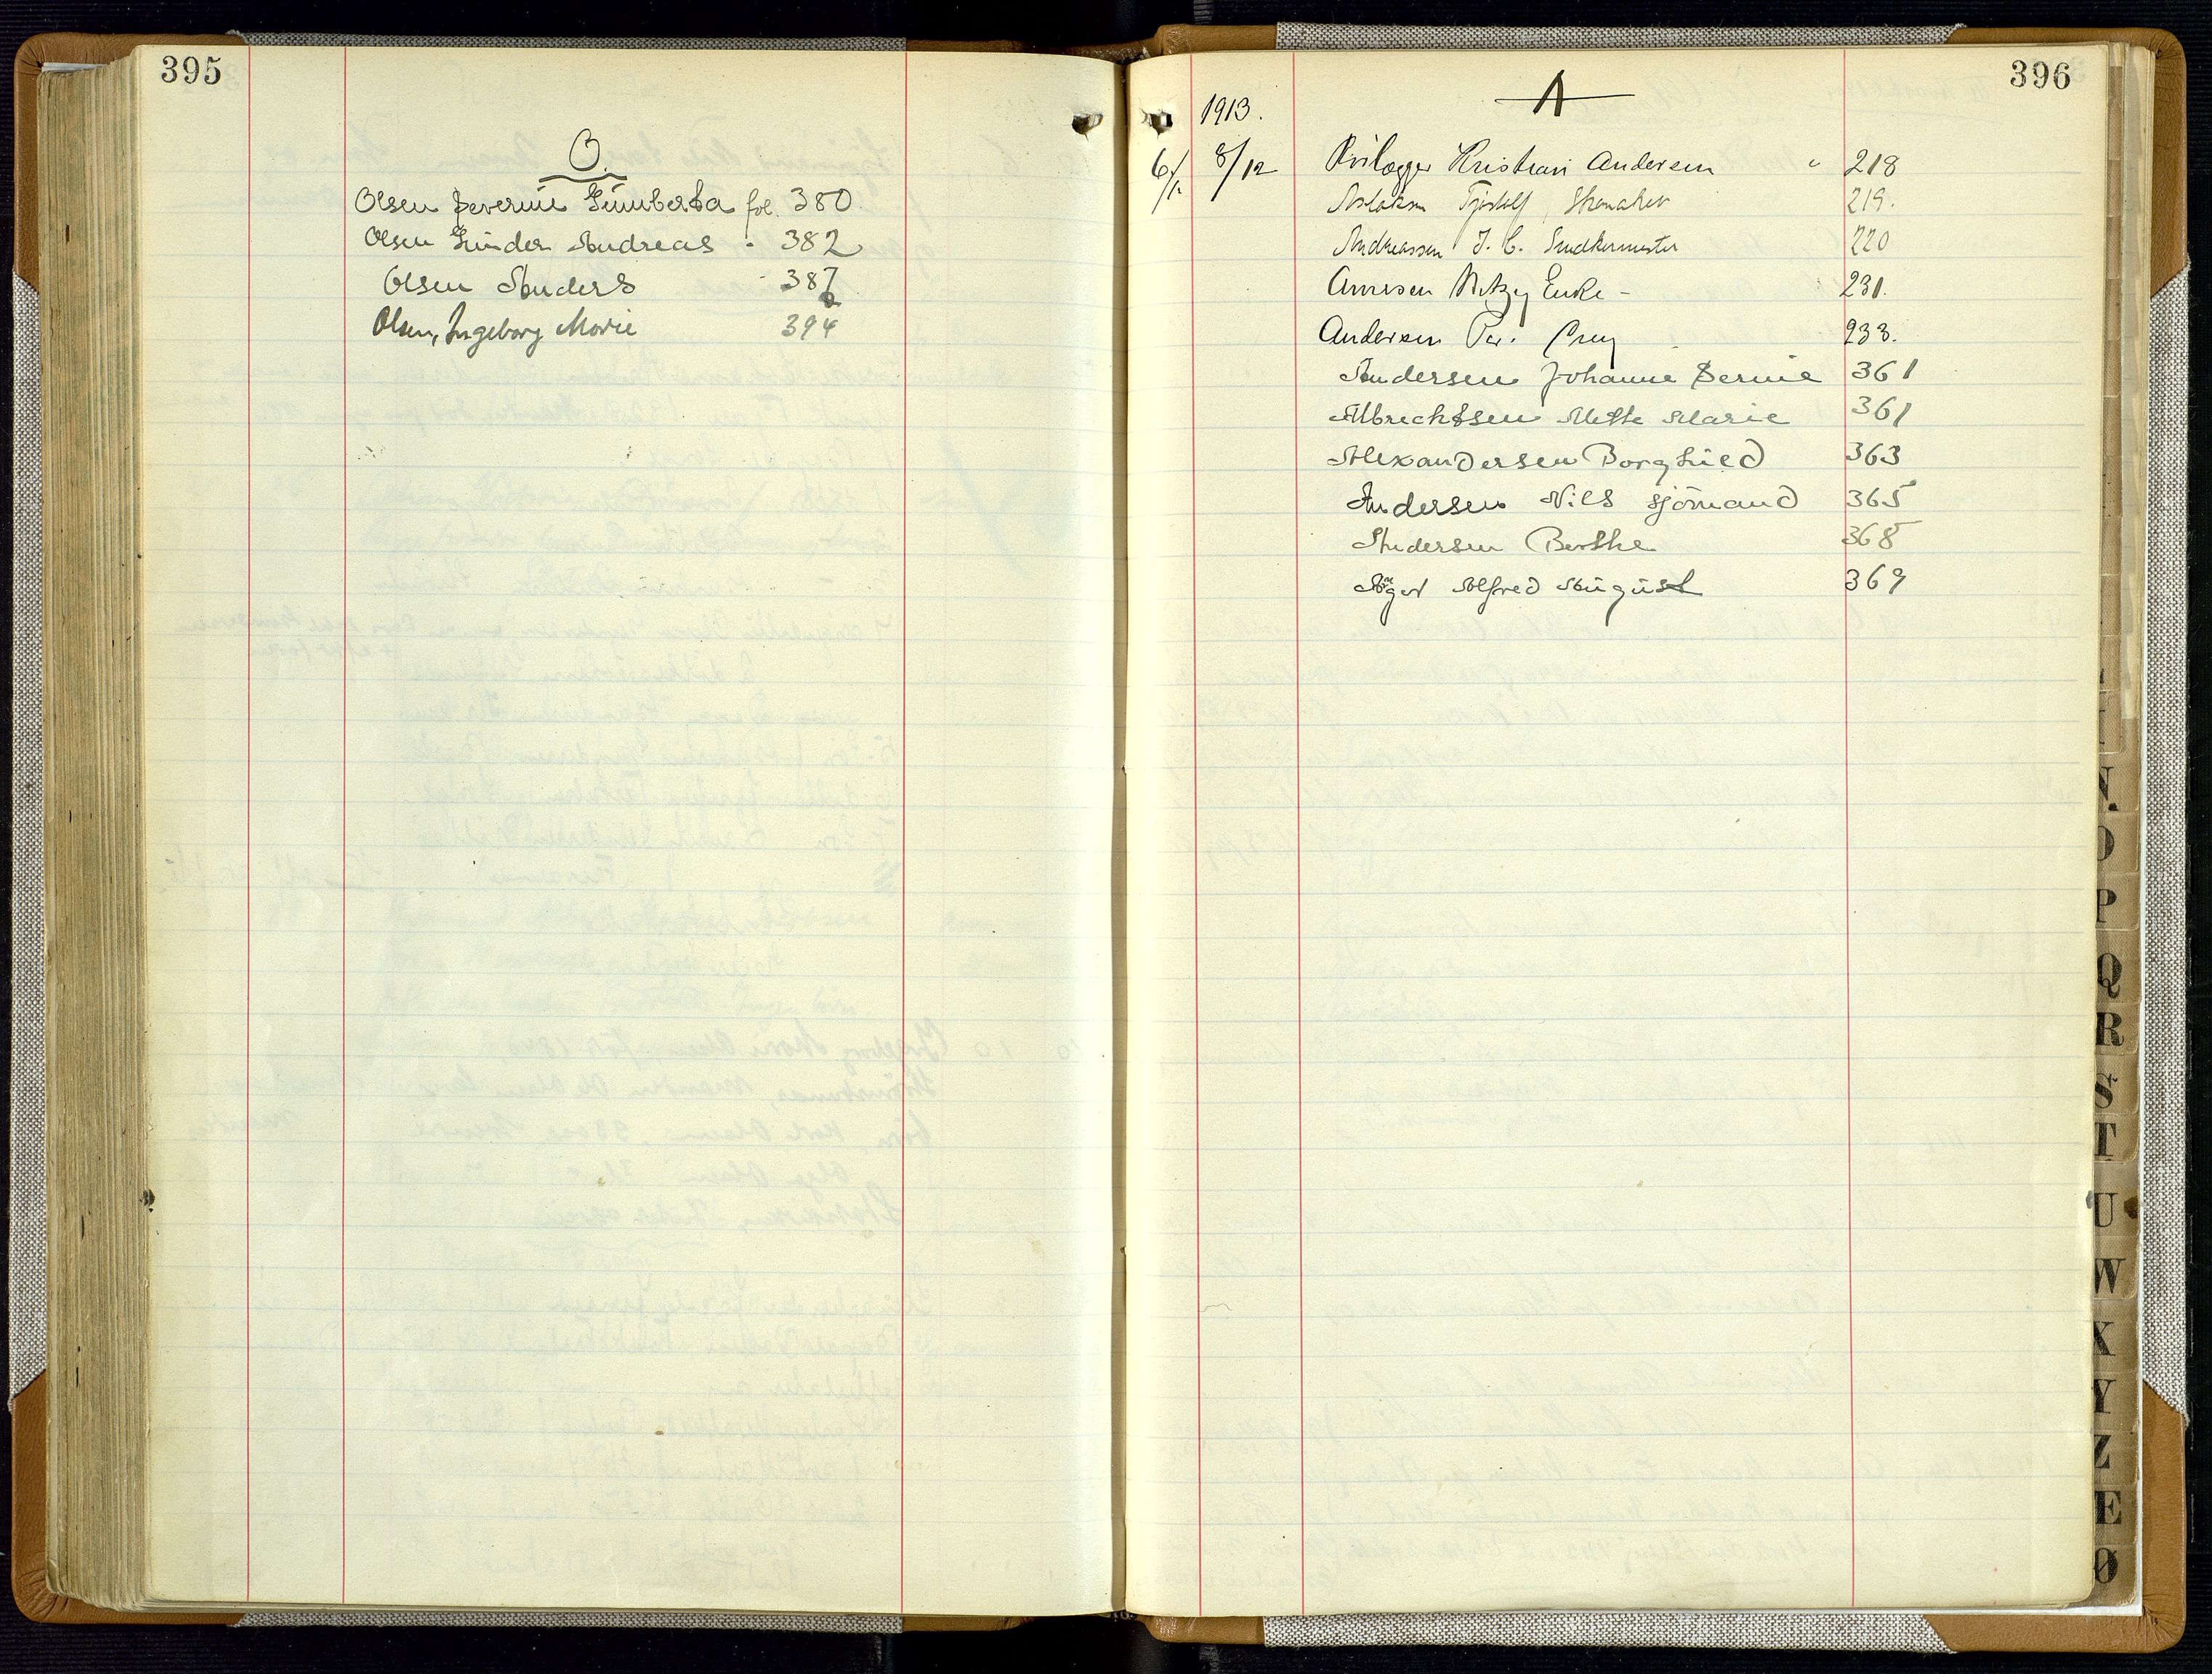 395
O.
Olsen Severine Gumberta fol. 380
Olsen Gunder Andreas - 382
Olsen Anders - 387
Olsen, Ingeborg Marie 394
396
1913. A
6/1 8/12 Kristian Andersen " 218
Aslaksen Tjostolf 219.
Andreassen J. C. 220
Enke - 231.
Andersen 233.
Andersen Johanne Serine 361
Albrechtsen Mette Marie 361
Alexandersen Borghild 363
Andersen Nils sjömand 365
Andersen Berthe 368
Alfred August 369
N.
O
P
Q
R
S
T
U
W
X
Y
Z
Æ
Ø